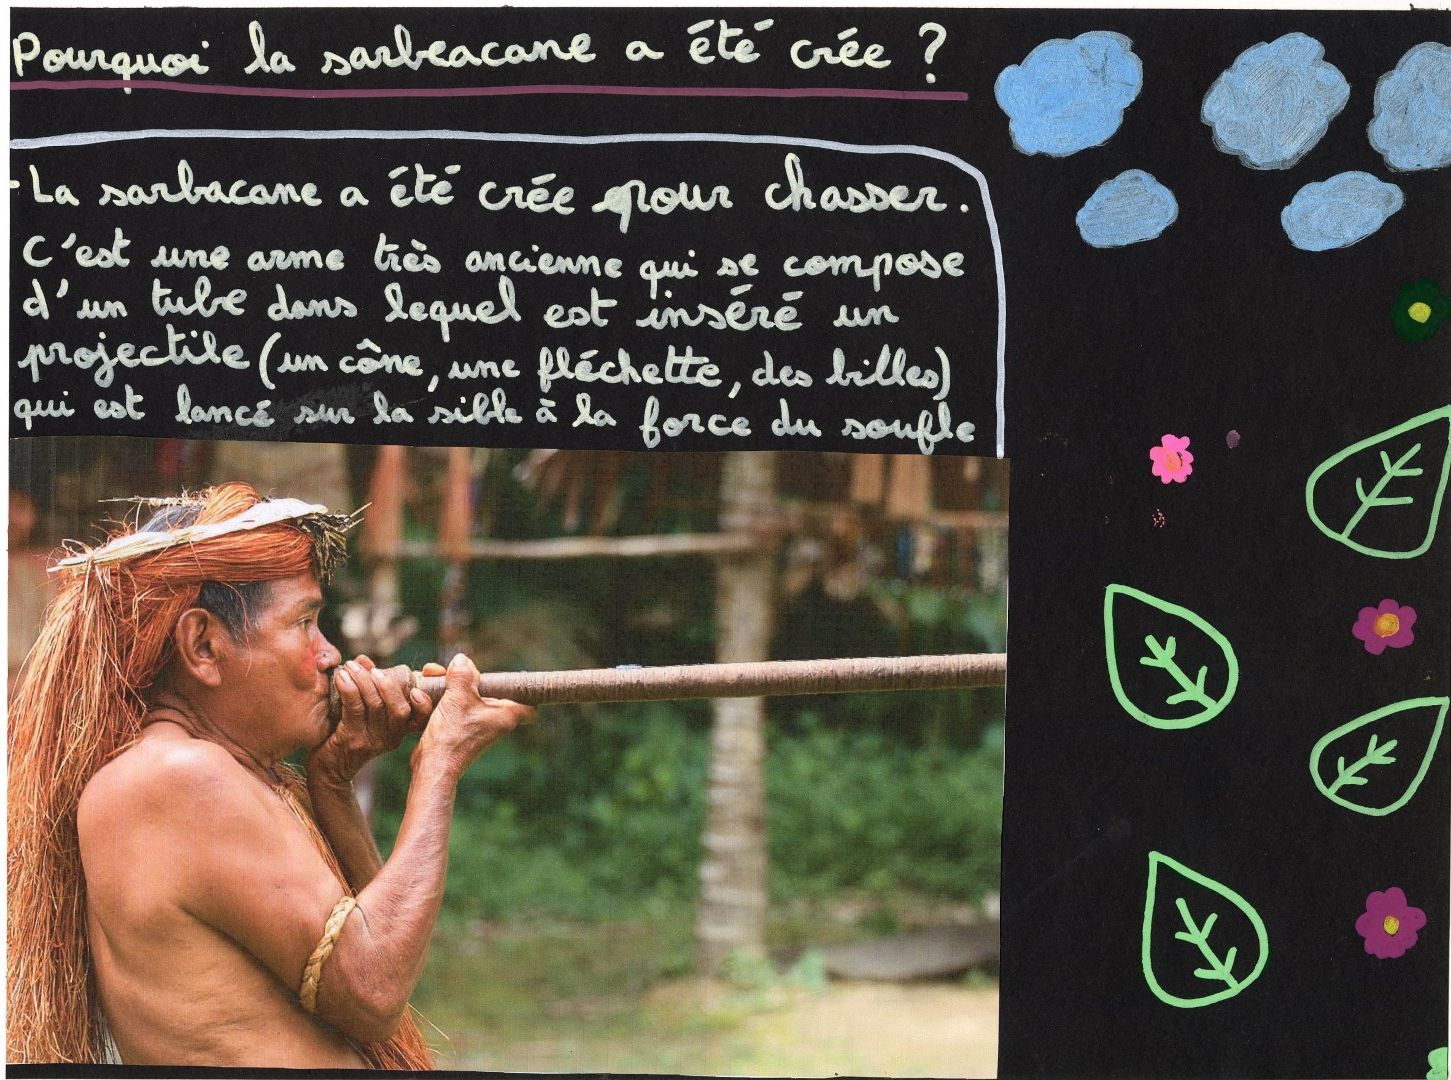 Pourquoi la sarbeacane a été crée ?
La sarbacane a été crée pour chasser.
C'est une arme très ancienne qui se compose
d'un tube dans lequel est inséré un
projectile (un cône, une fléchette, des billes)
qui est lancé sur la sible à la force du soufle